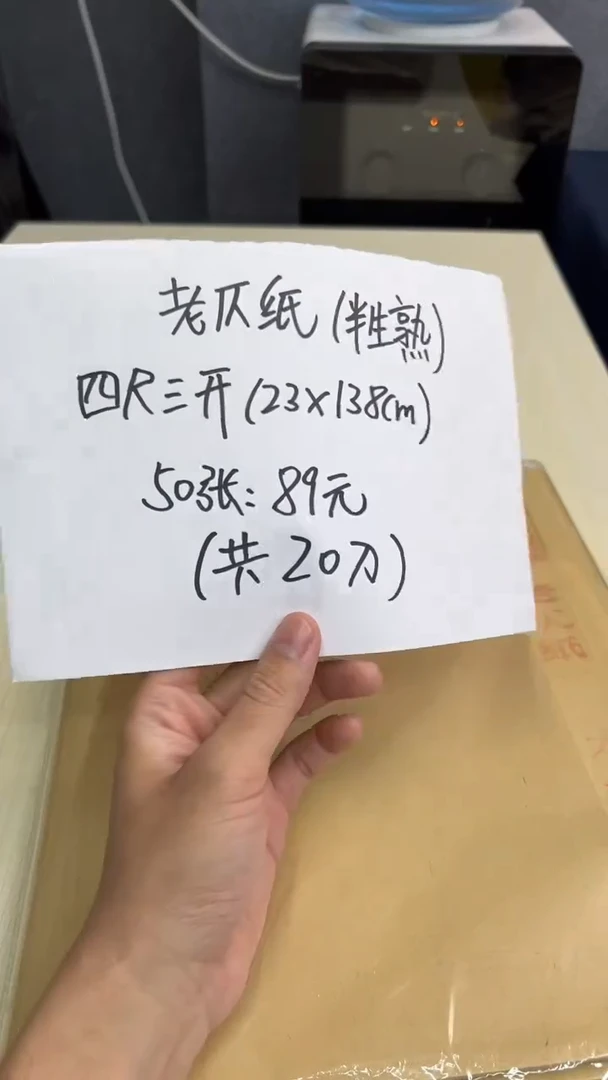 老仄纸(半生熟)
四尺三开(23×138cm)
50张:89元
(共20刀)